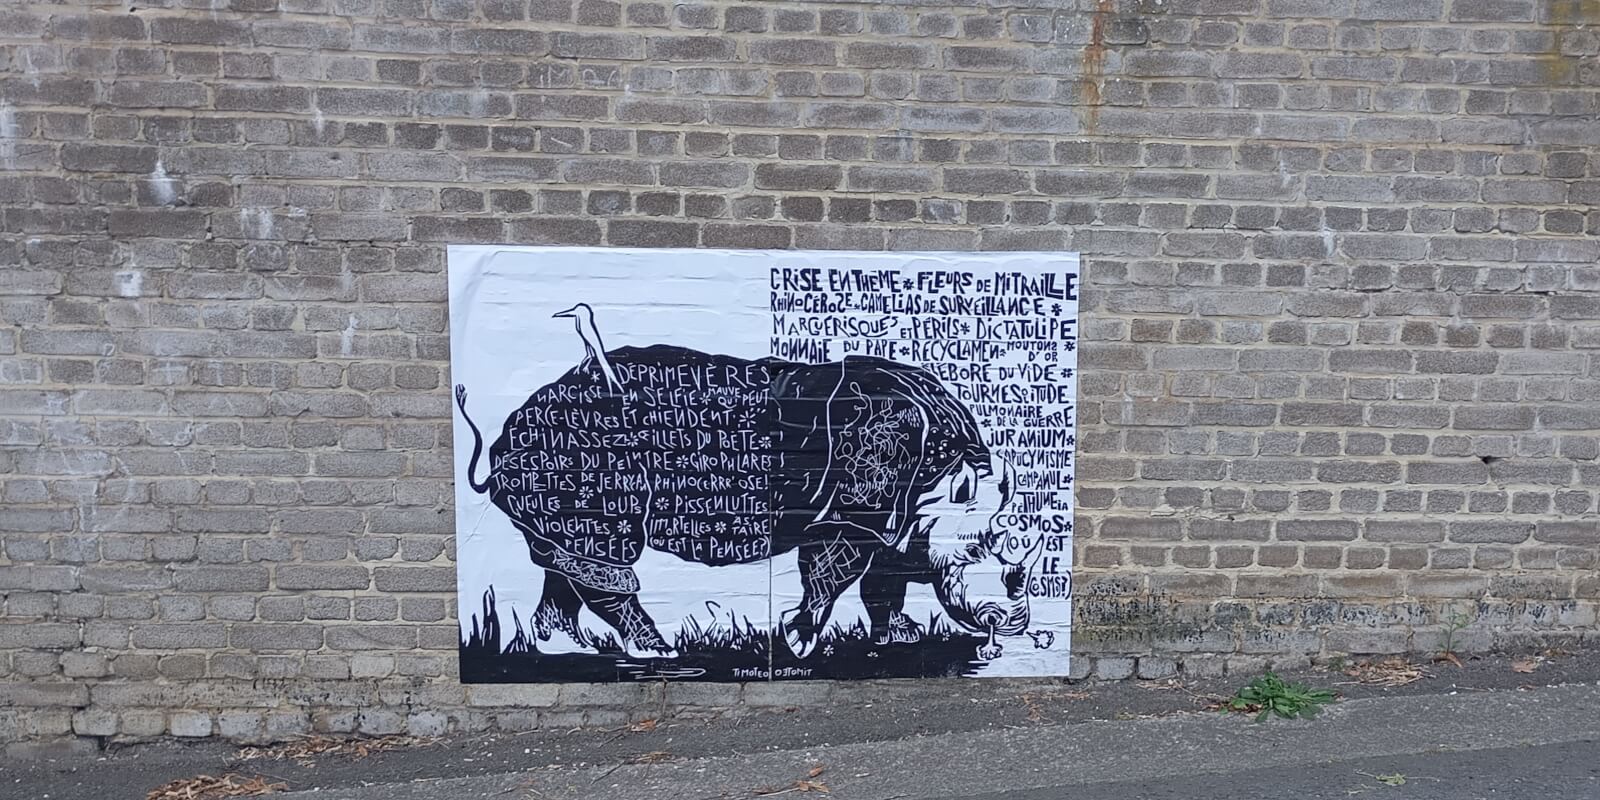 CRISE EN THÈME * FLEURS DE MITRAILLE
RHINOCÉROSE * CAMÉLIAS DE SURVEILLANCE *
MARGUERISQUES ET PÉRILS * DICTATULIPE
MONNAIE DU PAPE * RECYCLAMEN * MOUTONS D'OR *
ELEBORE DU VIDE *
TOURNESOLITUDE
PULMONAIRE
* DE LA GUERRE
JURANIUM *
CAPUCYNISME
CAMPANUL *
PETHUNEIA
COSMOS *
(OÙ EST
LE
COSMOS?)
* DÉPRIMEVÈRES
NARCISSE EN SELFIE * MAUVE QUI PEUT
PERCE-LÈVRES ET CHIENDENT *
ÉCHINASSEZ * ŒILLETS DU POÈTE *
DÉSESPOIRS DU PEINTRE * GIROPHLARES
TROMPETTES DE TERREAU RHINOCERRR'OSE!
GUEULES DE LOUPS * PISSENLUTTES
VIOLENTES * IMMORTELLES * AS TAIRE
PENSÉES (OÙ EST LA PENSÉE?)
TIMOTEO OETOMIT